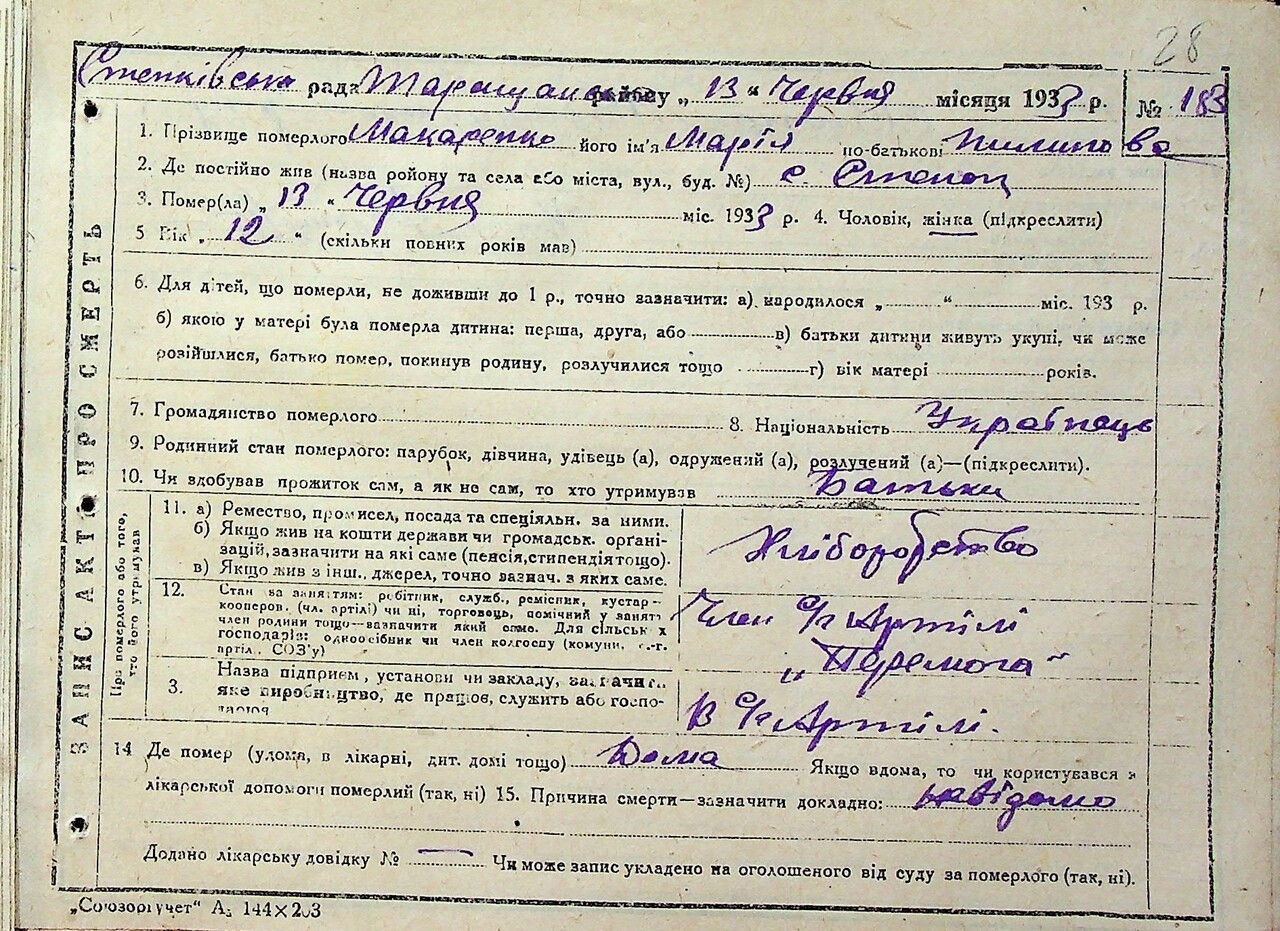 28
Степківська рада Таращанського району „ 13 “ Червня місяця 1933 р. № 183
1. Прізвище померлого Макаренко його ім'я Марія по-батькові Пилипова
2. Де постійно жив (назва району та села або міста, вул., буд. №) с. Степок
3. Помер(ла) „ 13 “ Червня міс. 1933 р. 4. Чоловік, жінка (підкреслити)
5 Вік „ 12 “ (скільки повних років мав)
6. Для дітей, що померли, не доживши до 1 р., точно зазначити: а) народилося „ “ міс. 193 р.
б) якою у матері була померла дитина: перша, друга, або в) батьки дитини живуть укупі, чи може
розійшлися, батько помер, покинув родину, розлучилися тощо г) вік матері років.
7. Громадянство померлого 8. Національність Українець
9. Родинний стан померлого: парубок, дівчина, удівець (а), одружений (а), розлучений (а)—(підкреслити).
10. Чи здобував прожиток сам, а як не сам, то хто утримував Батьки
ЗАПИС АКТ ПРО СМЕРТЬ
Про померлого або того, что його утримував
11. а) Ремество, промисел, посада та спеціяльн. за ними.
б) Якщо жив на кошти держави чи громадськ. орґані-
зацій, зазначити на які саме (пенсія, стипендія тощо).
в) Якщо жив з інш. джерел, точно зазнач. з яких саме.
Хліборобство
12. Стан за заняттям: робітник, служб., ремісник, кустар-
кооперов. (чл. артілі) чи ні, торговець, помічний у занятт.
член родини тощо—зазначити який саме. Для сільськ х
господарів: одноосібник чи член колгоспу (комуни, с.-г.
артіл., СОЗ'у)
Член С/г Артілі
„Перемога“
3. Назва підприєм., установи чи закладу, зазначить
яке виробництво, де працює, служить або госпо-
В С/г Артілі.
14 Де помер (удома, в лікарні, дит. домі тощо) Дома Якщо вдома, то чи користувався з
лікарської допомоги померлий (так, ні) 15. Причина смерти—зазначити докладно: невідомо
Додано лікарську довідку № — Чи може запис укладено на оголошеного від суду за померлого (так, ні).
„Союзоргучет“ А5 144×203